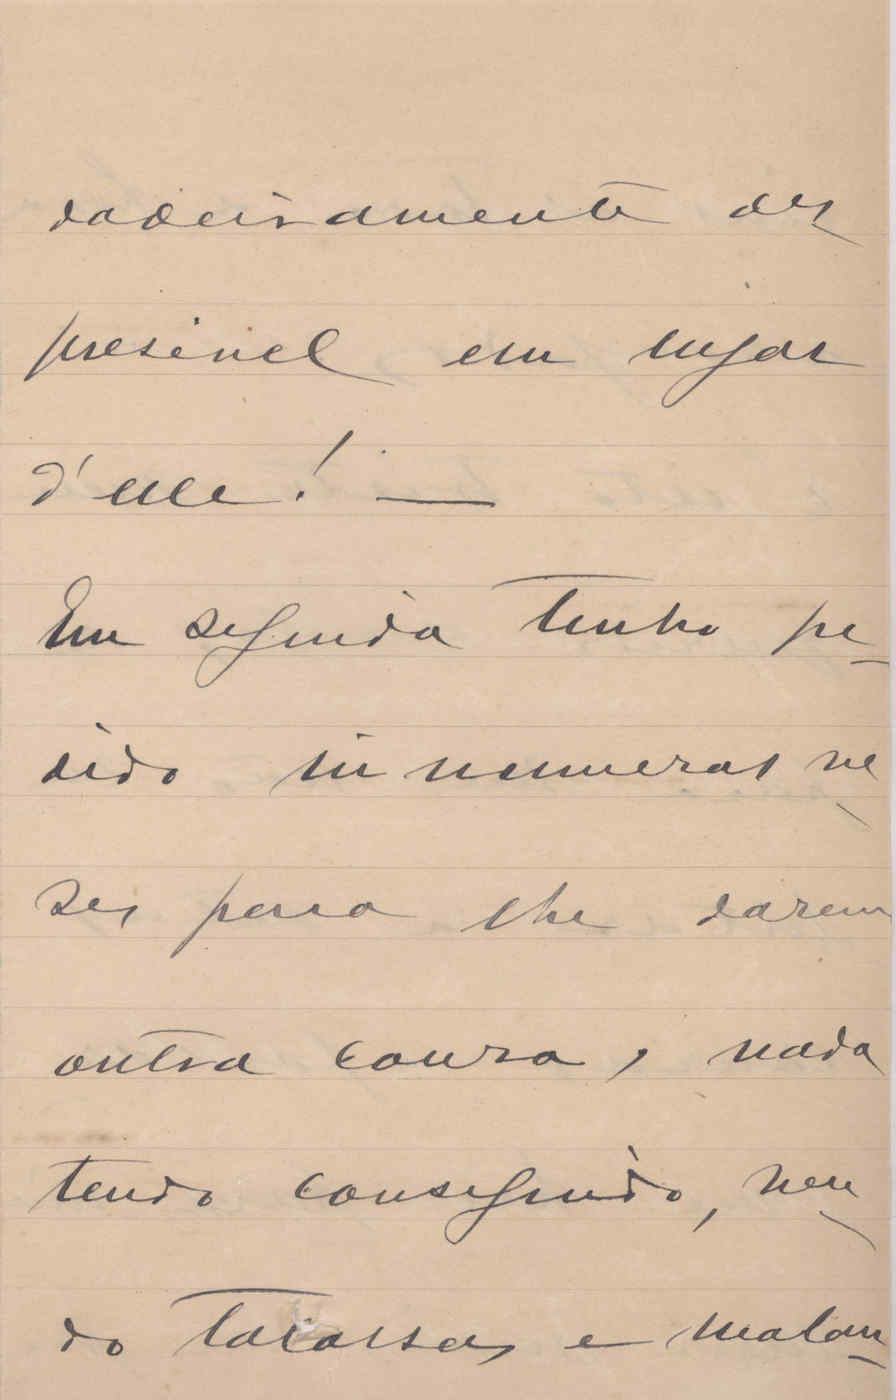 dadeiramente des
presivel em lugar
d'elle! —
Em seguida tenho pe-
dido innumeras ve-
ses para lhe darem
outra cousa, nada
tendo conseguido, ven-
do talassas e malan-